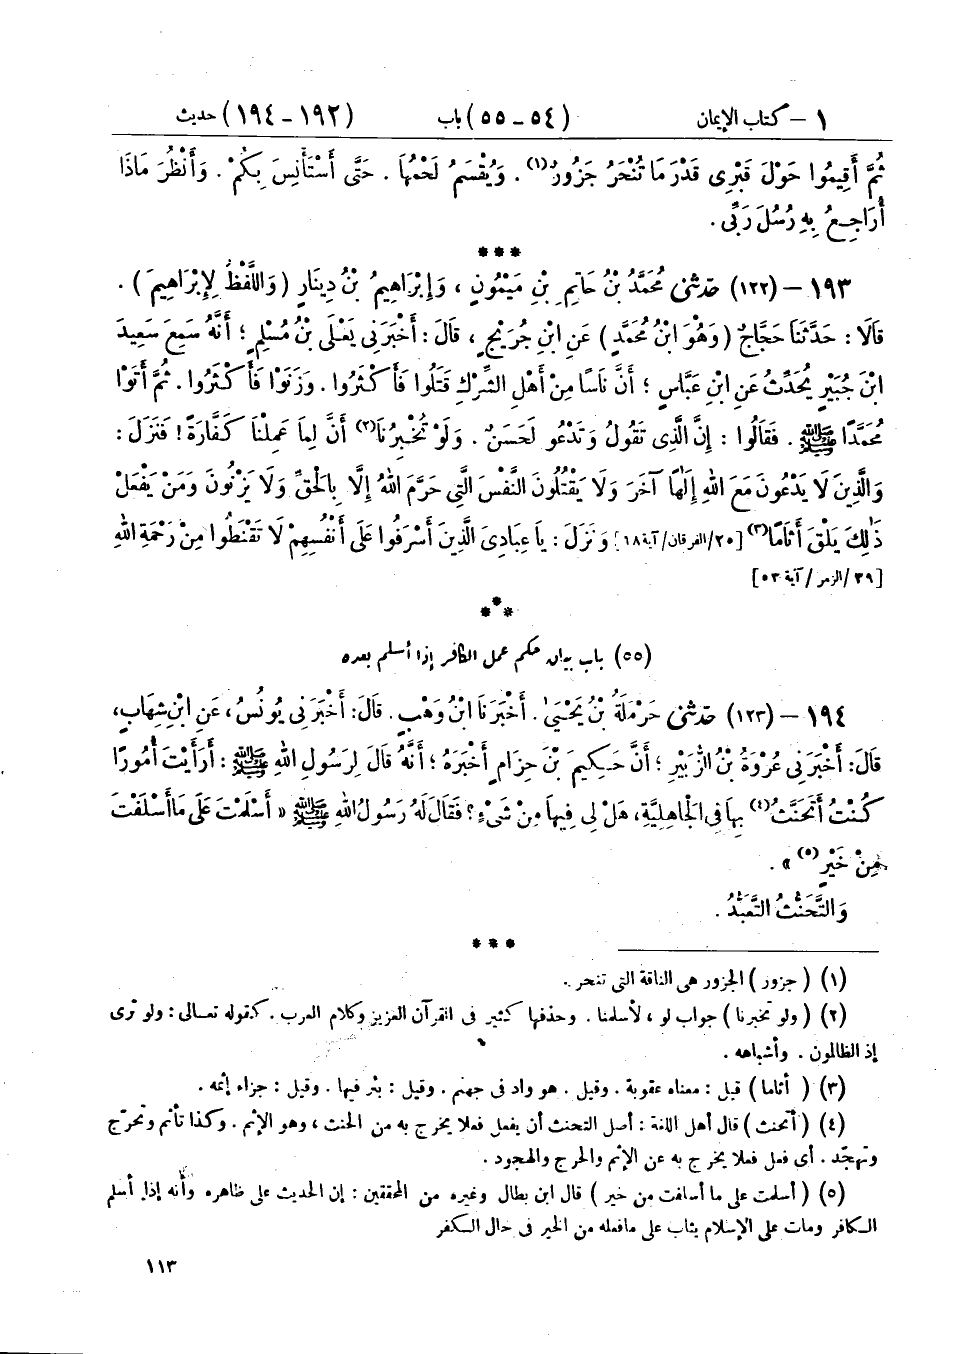 ١ - كتاب الإيمان (٥٤ - ٥٥) باب (١٩٢ - ١٩٤) حديث
ثُمَّ أَقِيمُوا حَوْلَ قَبْرِى قَدْرَ مَا تُنْحَرُ جَزُورٌ(١) . وَيُقْسَمُ لَحْمُهَا . حَتَّى أَسْتَأْنِسَ بِكُمْ . وَأَنْظُرَ مَاذَا
أُرَاجِعُ بِهِ رُسُلَ رَبِّى .
***
١٩٣ - (١٢٢) حَدَّثَنِي مُحَمَّدُ بْنُ حَاتِمِ بْنِ مَيْمُونٍ ، وَإِبْرَاهِيمُ بْنُ دِينَارٍ (وَاللَّفْظُ لِإِبْرَاهِيمَ) .
قَالَا : حَدَّثَنَا حَجَّاجٌ (وَهُوَ ابْنُ مُحَمَّدٍ) عَنِ ابْنِ جُرَيْجٍ ، قَالَ : أَخْبَرَنِي يَعْلَى بْنُ مُسْلِمٍ ؛ أَنَّهُ سَمِعَ سَعِيدَ
ابْنَ جُبَيْرٍ يُحَدِّثُ عَنِ ابْنِ عَبَّاسٍ ؛ أَنَّ نَاسًا مِنْ أَهْلِ الشِّرْكِ قَتَلُوا فَأَكْثَرُوا . وَزَنَوْا فَأَكْثَرُوا . ثُمَّ أَتَوْا
مُحَمَّدًا ﷺ . فَقَالُوا : إِنَّ الَّذِى تَقُولُ وَتَدْعُو لَحَسَنٌ . وَلَوْ تُخْبِرُنَا(٢) أَنَّ لِمَا عَمِلْنَا كَفَّارَةً ! فَنَزَلَ :
وَالَّذِينَ لَا يَدْعُونَ مَعَ اللهِ إِلَهًا آخَرَ وَلَا يَقْتُلُونَ النَّفْسَ الَّتِي حَرَّمَ اللهُ إِلَّا بِالْحَقِّ وَلَا يَزْنُونَ وَمَنْ يَفْعَلْ
ذَٰلِكَ يَلْقَ أَثَامًا(٣) [٢٥/الفرقان/آية ٦٨] وَنَزَلَ : يَا عِبَادِىَ الَّذِينَ أَسْرَفُوا عَلَى أَنْفُسِهِمْ لَا تَقْنَطُوا مِنْ رَحْمَةِ اللهِ
[٣٩/الزمر/آية ٥٣]
***
(٥٥) باب بيان حكم عمل الكافر إذا أسلم بعده
١٩٤ - (١٢٣) حَدَّثَنِي حَرْمَلَةُ بْنُ يَحْيَىٰ . أَخْبَرَنَا ابْنُ وَهْبٍ . قَالَ : أَخْبَرَنِي يُونُسُ ، عَنِ ابْنِ شِهَابٍ ،
قَالَ : أَخْبَرَنِي عُرْوَةُ بْنُ الزُّبَيْرِ ؛ أَنَّ حَكِيمَ بْنَ حِزَامٍ أَخْبَرَهُ ؛ أَنَّهُ قَالَ لِرَسُولِ اللهِ ﷺ : أَرَأَيْتَ أُمُورًا
كُنْتُ أَتَحَنَّثُ(٤) بِهَا فِي الْجَاهِلِيَّةِ ، هَلْ لِي فِيهَا مِنْ شَيْءٍ ؟ فَقَالَ لَهُ رَسُولُ اللهِ ﷺ « أَسْلَمْتَ عَلَى مَا أَسْلَفْتَ
مِنْ خَيْرٍ(٥) » .
وَالتَّحَنُّثُ التَّعَبُّدُ .
***
(١) ( جزور ) الجزور هى الناقة التى تنحر .
(٢) ( ولو تخبرنا ) جواب لو ، لأسلمنا . وحذفها كثير فى القرآن العزيز وكلام العرب . كقوله تعالى : ولو ترى
إذ الظالمون . وأشباهه .
(٣) ( أثاما ) قيل : معناه عقوبة . وقيل . هو واد فى جهنم . وقيل : بئر فيها . وقيل : جزاء إثمه .
(٤) ( أتحنث ) قال أهل اللغة : أصل التحنث أن يفعل فعلا يخرج به من الحنث ، وهو الإثم . وكذا تأثم وتحرّج
وتهجّد . أى فعل فعلا يخرج به عن الإثم والحرج والهجود .
(٥) ( أسلمت على ما أسلفت من خير ) قال ابن بطال وغيره من المحققين : إن الحديث على ظاهره وأنه إذا أسلم
الكافر ومات على الإسلام يثاب على مافعله من الخير فى حال الكفر
١١٣